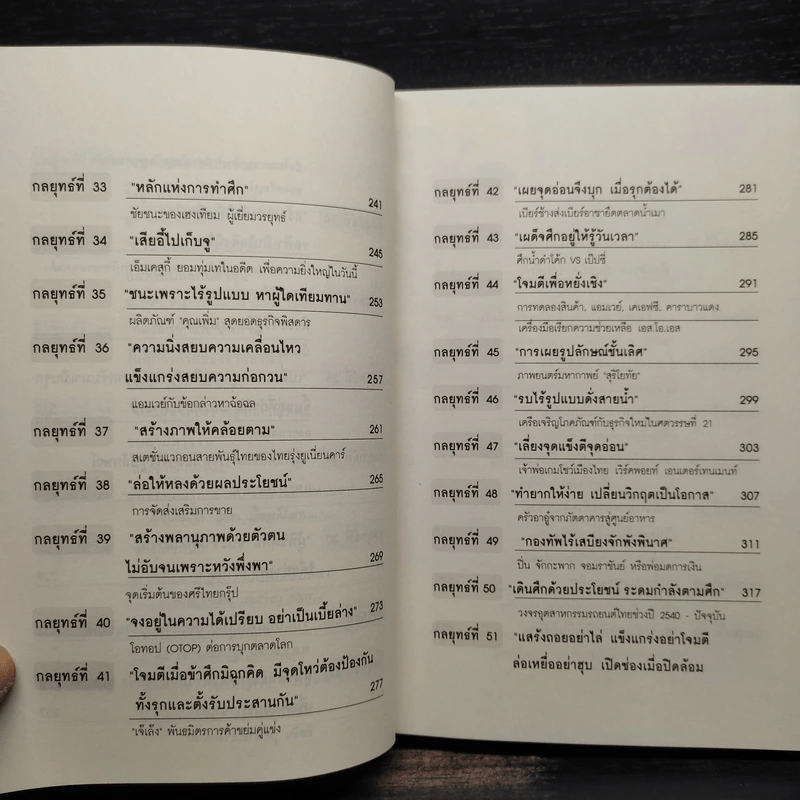 กลยุทธ์ที่ 33 "หลักแห่งการทำศึก" 241
ชัยชนะของเฮงเทียม ผู้เยี่ยมวรยุทธ์
กลยุทธ์ที่ 34 "เสียอี้ไปเก็บจู" 245
เอ็มเคสุกี้ ยอมทุ่มเทในอดีต เพื่อความยิ่งใหญ่ในวันนี้
กลยุทธ์ที่ 35 "ชนะเพราะไร้รูปแบบ หาผู้ใดเทียมทาน" 253
ผลิตภัณฑ์ "คุณเพิ่ม" สุดยอดธุรกิจพิสดาร
กลยุทธ์ที่ 36 "ความนิ่งสยบความเคลื่อนไหว
แข็งแกร่งสยบความก่อกวน" 257
แอมเวย์กับข้อกล่าวหาฉ้อฉล
กลยุทธ์ที่ 37 "สร้างภาพให้คล้อยตาม" 261
สเตชั่นแวกอนสายพันธุ์ไทยของไทยรุ่งยูเนี่ยนคาร์
กลยุทธ์ที่ 38 "ล่อให้หลงด้วยผลประโยชน์" 265
การจัดส่งเสริมการขาย
กลยุทธ์ที่ 39 "สร้างพลานุภาพด้วยตัวตน
ไม่อับจนเพราะหวังพึ่งพา" 269
จุดเริ่มต้นของศรีไทยกรุ๊ป
กลยุทธ์ที่ 40 "จงอยู่ในความได้เปรียบ อย่าเป็นเบี้ยล่าง" 273
โอทอป (OTOP) ต่อการบุกตลาดโลก
กลยุทธ์ที่ 41 "โจมตีเมื่อข้าศึกมิฉุกคิด มีจุดโหว่ต้องป้องกัน
ทั้งรุกและตั้งรับประสานกัน" 277
"เจ๊เล้ง" พันธมิตรการค้าขย่มคู่แข่ง
กลยุทธ์ที่ 42 "เผยจุดอ่อนจึงบุก เมื่อรุกต้องได้" 281
เบียร์ช้างส่งเบียร์อาชายึดตลาดน้ำเมา
กลยุทธ์ที่ 43 "เผด็จศึกอยู่ให้รู้วันเวลา" 285
ศึกน้ำดำโค้ก VS เป๊ปซี่
กลยุทธ์ที่ 44 "โจมตีเพื่อหยั่งเชิง" 291
การทดลองสินค้า, แอมเวย์, เคเอฟซี, คาราบาวแดง
เครื่องมือเรียกความช่วยเหลือ เอส.โอ.เอส
กลยุทธ์ที่ 45 "การเผยรูปลักษณ์ชั้นเลิศ" 295
ภาพยนตร์มหากาพย์ "สุริโยทัย"
กลยุทธ์ที่ 46 "รบไร้รูปแบบดั่งสายน้ำ" 299
เครือเจริญโภคภัณฑ์กับธุรกิจใหม่ในศตวรรษที่ 21
กลยุทธ์ที่ 47 "เลี่ยงจุดแข็งตีจุดอ่อน" 303
เจ้าพ่อเกมโชว์เมืองไทย เวิร์คพอยท์ เอนเตอร์เทนเมนท์
กลยุทธ์ที่ 48 "ทำยากให้ง่าย เปลี่ยนวิกฤตเป็นโอกาส" 307
ครัวอาอู๋จากภัตตาคารสู่ศูนย์อาหาร
กลยุทธ์ที่ 49 "กองทัพไร้เสบียงจักพังพินาศ" 311
ปิ่น จักกะพาก จอมราชันย์ หรือพ่อมดการเงิน
กลยุทธ์ที่ 50 "เดินศึกด้วยประโยชน์ ระดมกำลังตามศึก" 317
วงจรอุตสาหกรรมรถยนต์ไทยช่วงปี 2540 - ปัจจุบัน
กลยุทธ์ที่ 51 "แสร้งถอยอย่าไล่ แข็งแกร่งอย่าโจมตี
ล่อเหยื่ออย่าฮุบ เปิดช่องเมื่อปิดล้อม